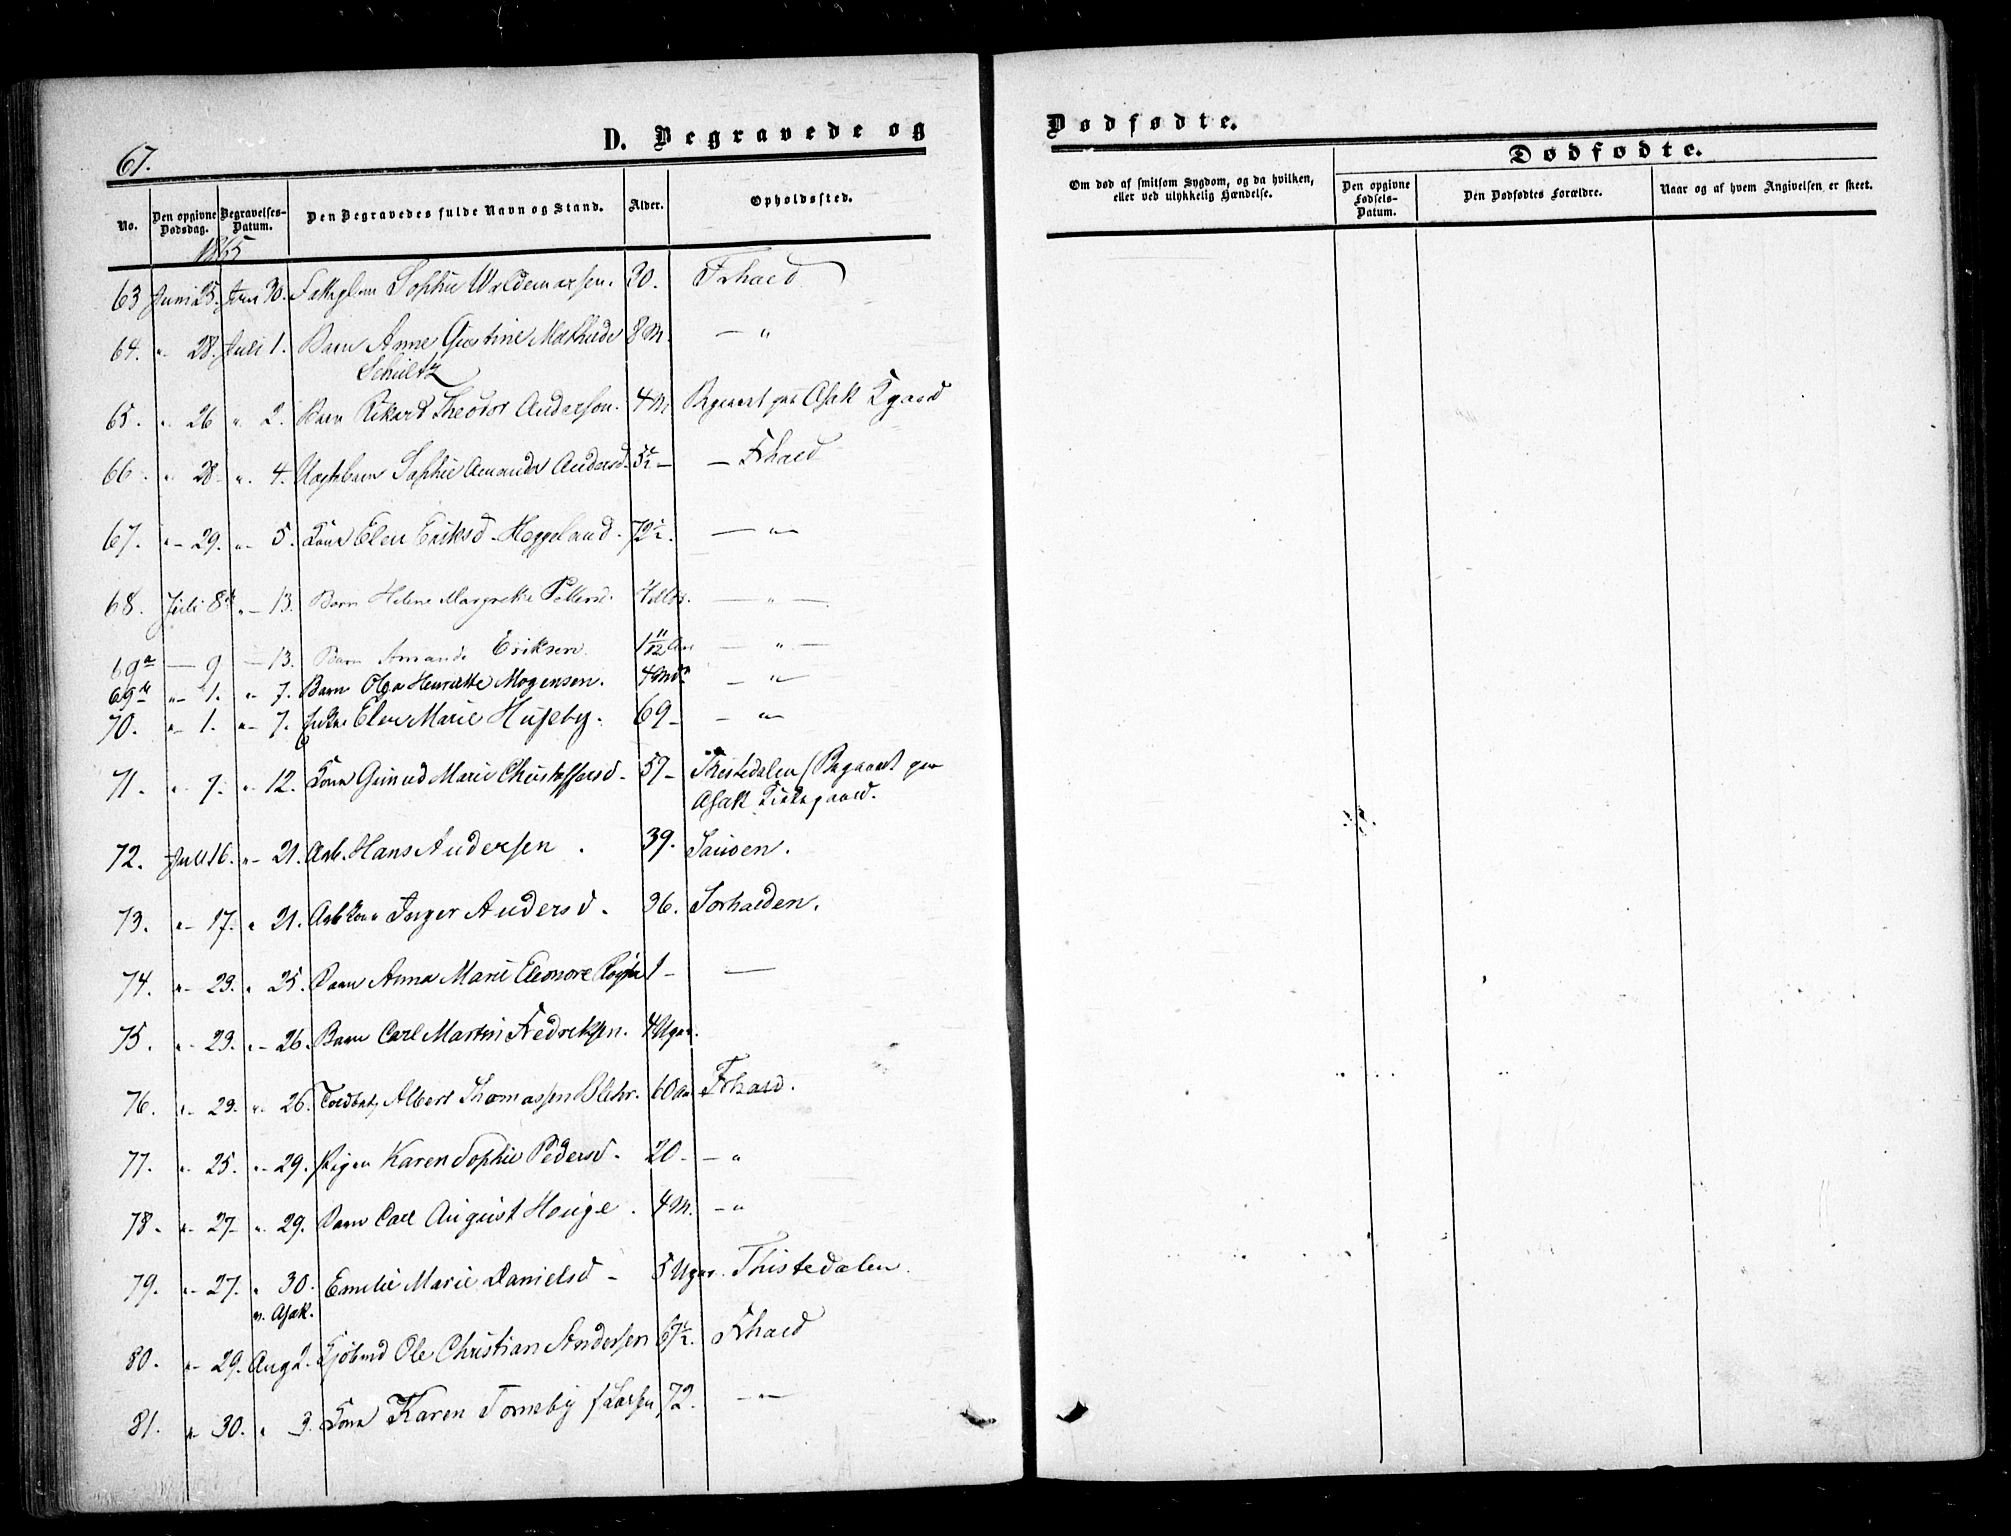 67.
D. Begravede og
Dødfødte.
No.
Den opgivne Dødsdag.
Begravelses-Datum.
Den Begravedes fulde Navn og Stand.
Alder.
Opholdssted.
Om død af smitsom Sygdom, og da hvilken,
eller ved ulykkelig Hændelse.
Dødfødte.
Den opgivne Fødsels-Datum.
Den Dødfødtes Forældre.
Naar og af hvem Angivelsen er skeet.
1865
63 Juni 25. Juni 30. Sophie Waldemarsen. 30. Frhald
64. " 28. Juli 1. Barn Anne Gustine Mathilde 8 M. — "
Schultz
65. " 26 " 2. Barn Rikard Theodor Anderson. 4 M. Begravet paa Asak Kgaard
66. " 28 " 4. Sophie Amanda Andersd. 5½ — Frhald
67. " 29. " 5. Kone Elen Eriksd. Heggeland. 72½. — " —
68. Juli 8de " 13. Barn Helene Margrethe Petters. — " —
69a — 9 — 13. Barn Amanda Eriksen 1 11/12 Aar — " —
69b " 1. " 7. Barn Olga Henriette Mogensen. 4 Mdr — " —
70. " 1. " 7. Enke Elen Marie Huseby. 69 — — " —
71. " 7. " 12. Kone Marie Christoffersd. 57 — Thistedalen / Begravet paa
Asak Kirkegaard.
72. Juli 16. " 21. Arb. Hans Andersen. 39. Sauøen.
73. " 17. " 21. Arb Kone Inger Andersd. 36. Sørhalden.
74. " 23. " 25. Barn Anna Marie Eleonore 1 — —
75. " 23. " 26. Barn Carl Martin Fredriksen. 4 Uger.
76. " 23. " 26. Albert Thomassen Blehr. 60 Aar Frhald.
77. " 25. " 29. Pigen Karen Sophie Pedersd. 20. — "
78. " 27 " 29. Barn Carl August Hauge. 4 M. — "
79. " 27. " 30. Emilie Marie Danielsd — 5 Uger. Thistedalen.
v. Asak.
80. " 29. Aug 2. Ole Christian Andersen 67½. Frhald
81. " 30. " 3. Kone Karen Torneby f. Larsen 72. — " —